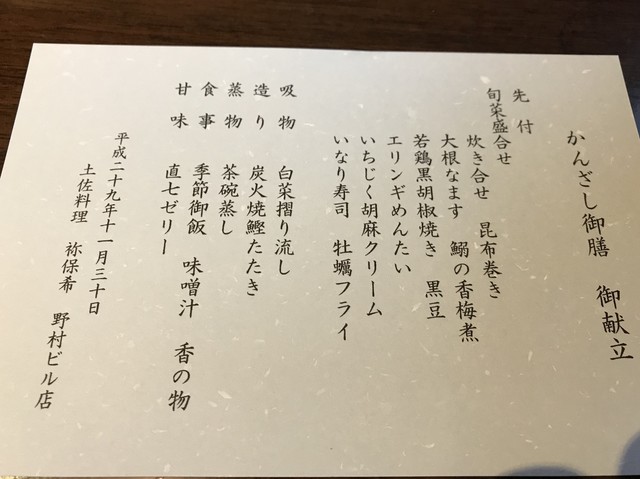 かんざし御膳　御献立
先付
旬菜盛合せ
炊き合せ　昆布巻き
大根なます　鰯の香梅煮
若鶏黒胡椒焼き　黒豆
エリンギめんたい
いちじく胡麻クリーム
いなり寿司　牡蠣フライ
吸物　白菜摺り流し
造り　炭火焼鰹たたき
蒸物　茶碗蒸し
食事　季節御飯　味噌汁　香の物
甘味　直七ゼリー
平成二十九年十一月三十日
土佐料理　祢保希　野村ビル店